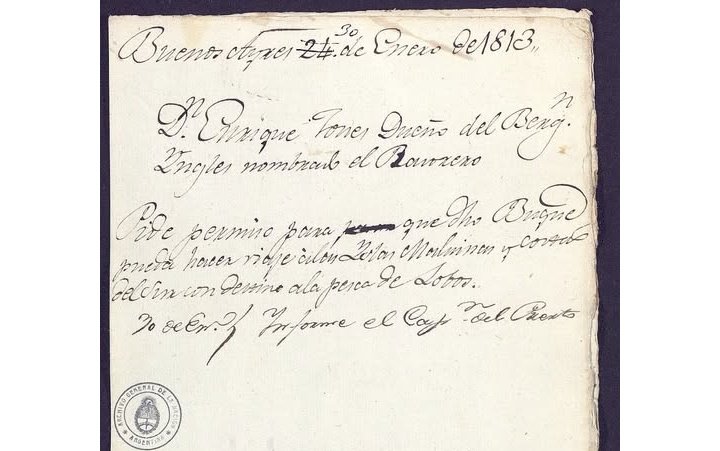 Buenos Ayres 24 30 de Enero de 1813,,
Dn Enrique Jones Dueño del Bergn.
Yngles nombrado el
Pide permiso para que dho Buque
pueda hacer viaje á las Yslas Malvinas y costa
del Sur con destino ala pesca de Lobos.
30 de Enº. Informe el Capn. del Puerto
ARCHIVO GENERAL DE LA NACION
ARGENTINA